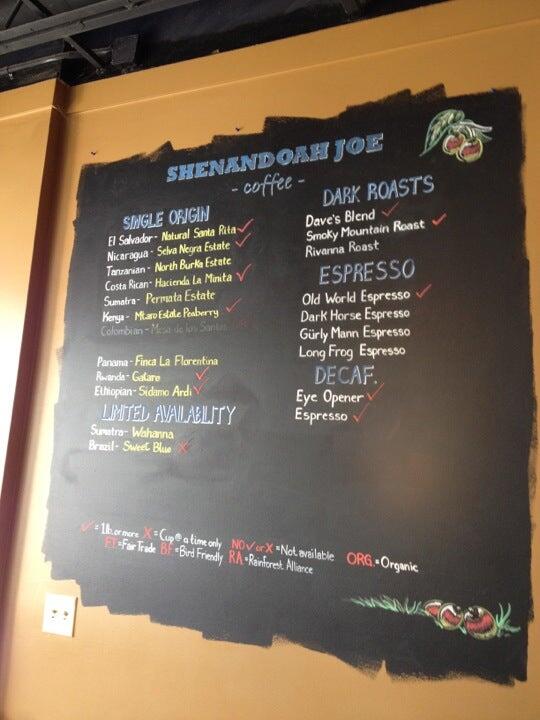 SHENANDOAH JOE
- coffee -
SINGLE ORIGIN
El Salvador - Natural Santa Rita ✓
Nicaragua - Selva Negra Estate ✓
Tanzanian - North Burka Estate
Costa Rican - Hacienda La Minita ✓
Sumatra - Permata Estate
Kenya - Mtaro Estate Peaberry ✓
Colombian - Mesa de los Santos
Panama - Finca La Florentina
Rwanda - Gatare ✓
Ethiopian - Sidamo Ardi ✓
LIMITED AVAILABILITY
Sumatra - Wahanna
Brazil - Sweet Blue X
DARK ROASTS
Dave's Blend ✓
Smoky Mountain Roast ✓
Rivanna Roast
ESPRESSO
Old World Espresso ✓
Dark Horse Espresso
Gürly Mann Espresso
Long Frog Espresso
DECAF.
Eye Opener ✓
Espresso ✓
✓ = 1 lb. or more X = Cup @ a time only NO ✓ or X = Not available ORG. = Organic
FT = Fair Trade BF = Bird Friendly RA = Rainforest Alliance